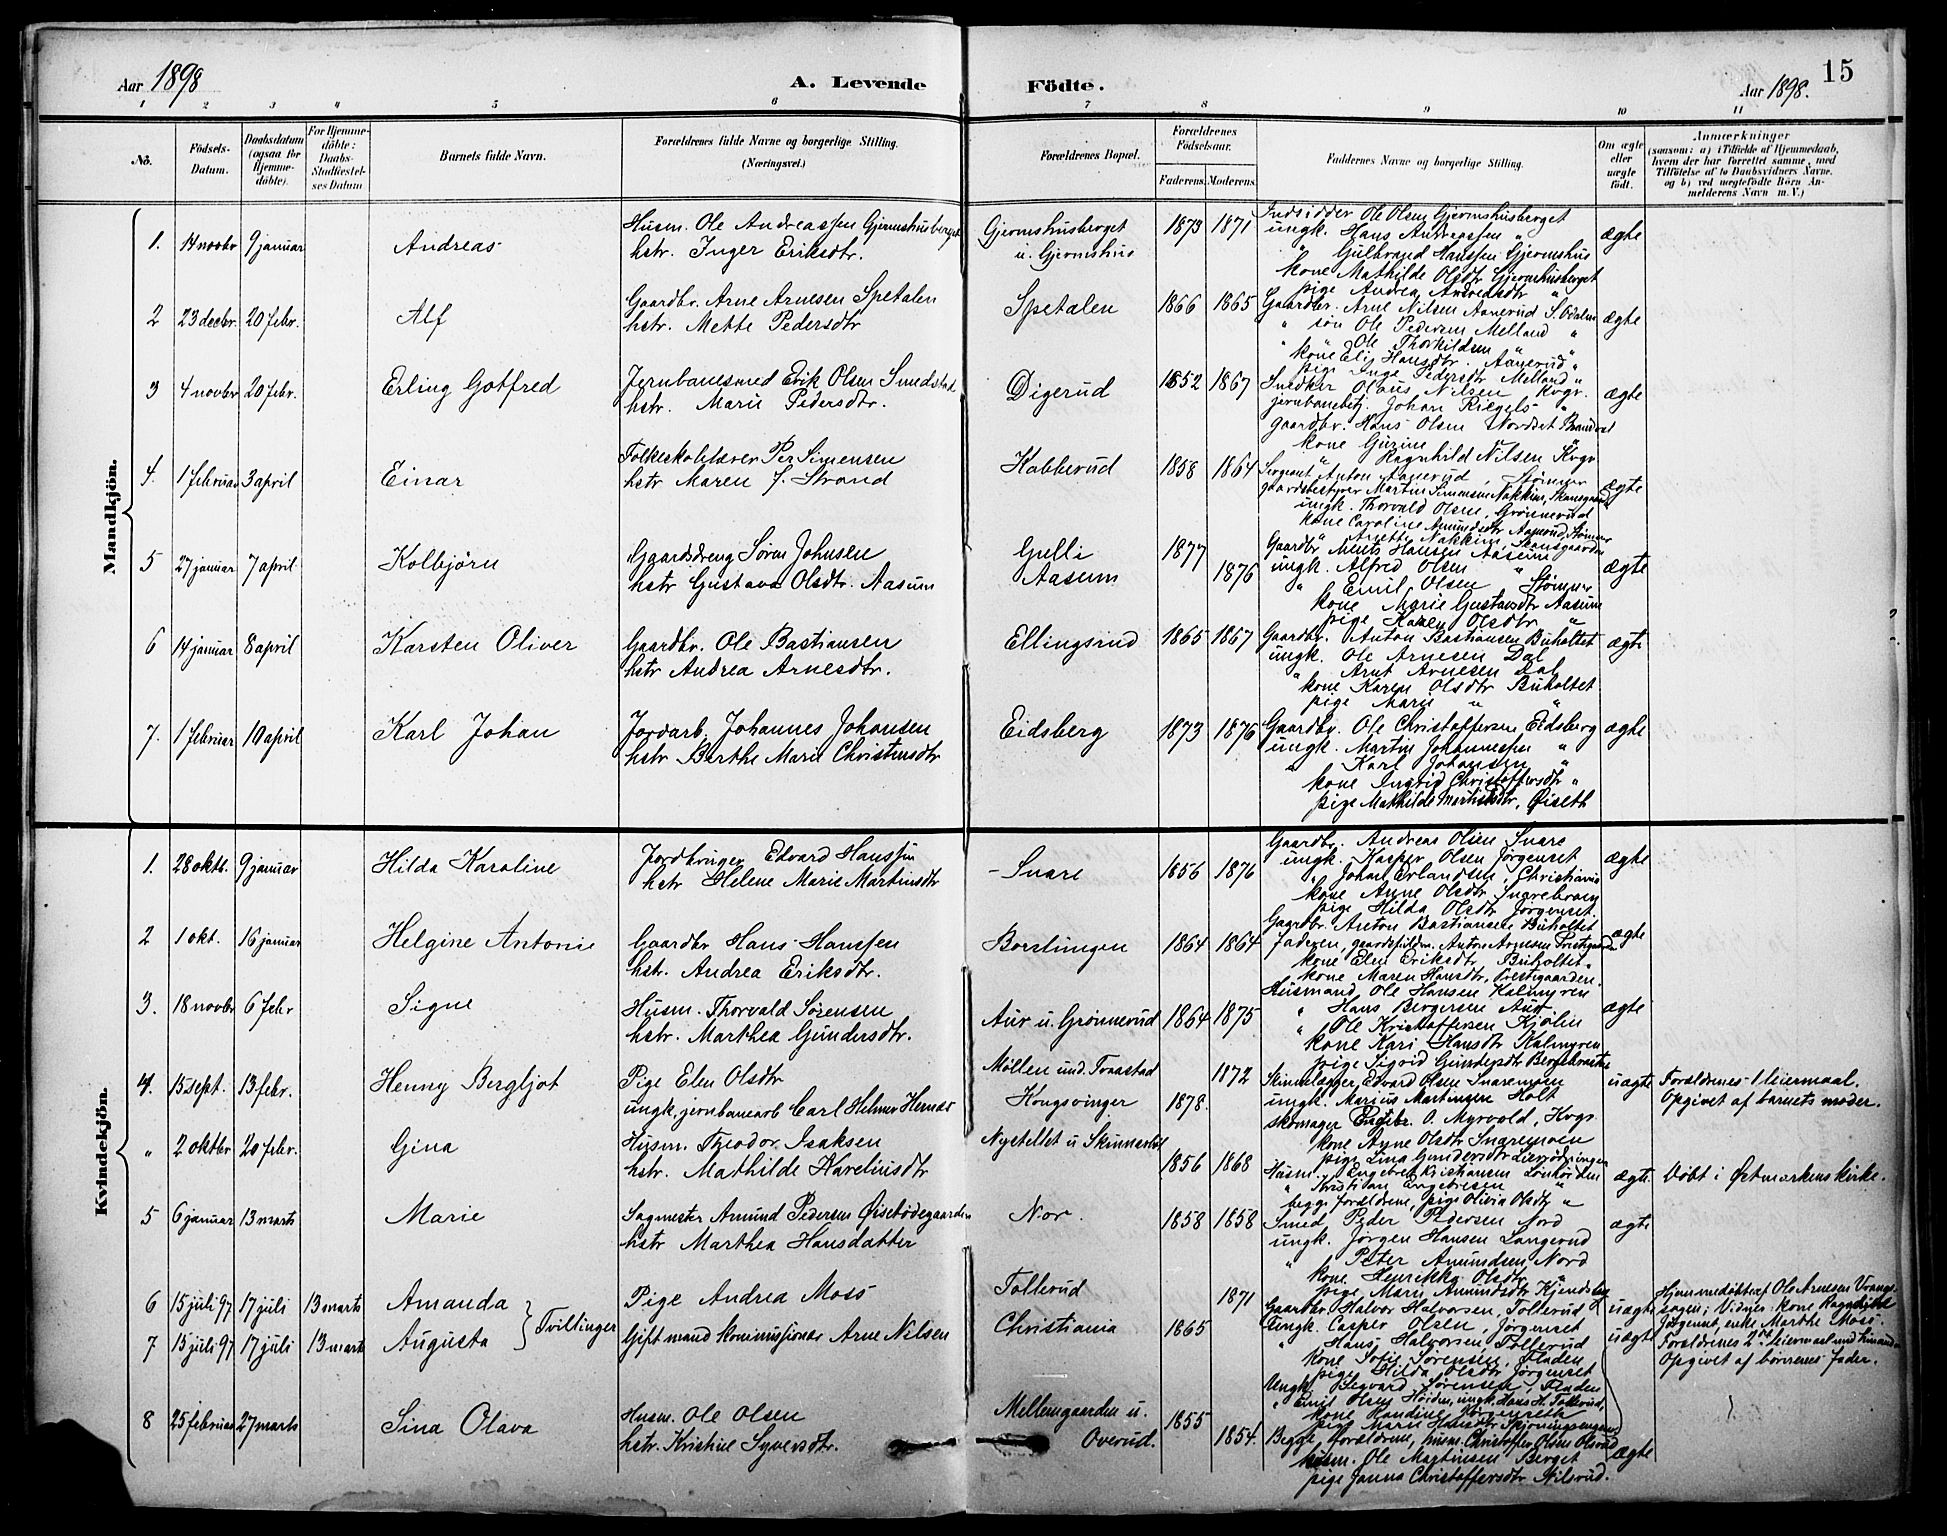 Aar 1898
A. Levende
Födte.
15
Aar 1898.
1 2 3 4 5 6 7 8 9 10 11
No.
Födsels-Datum.
Daabsdatum (ogsaa for Hjemme-döbte).
For Hjemme-döbte: Daabs-Stadfæstel-ses Datum
Barnets fulde Navn.
Forældrenes fulde Navne og borgerlige Stilling. (Næringsvei.)
Forældrenes Bopæl.
Forældrenes Födselsaar.
Faderens. Moderens.
Faddernes Navne og borgerlige Stilling.
Om ægte eller uægte födt.
Anmærkninger
(saasom: a) i Tilfælde af Hjemmedaab, hvem der har forrettet samme, med Tilföielse af to Daabsvidners Navne, og b) ved uægtefödte Börn An-melderens Navn m. V.)
Mandkjön.
1. 14 novbr 9 januar Andreas Husm. Ole Andreassen Gjermshusberget
hstr. Inger Eriksdtr. Gjermshusberget u. Gjermshus 1873 1871 ægte
Indsidder Ole Olsen Gjermshusberget
ungk. Hans Andreassen "
" Gulbrand Hanssen Gjermshus
kone Mathilde Olsdtr Gjermshusberget
pige Andrea Andreasdtr "
2 23 decbr. 20 febr. Alf Gaardbr. Arne Arnesen Spetalen
hstr. Mette Pedersdtr Spetalen 1866 1865 ægte
Gaardbr. Arne Nilsen Aanerud S. Odalen
" søn Ole Pedersen Melland "
" Ole Thorkildsen "
kone Elis Hansdtr. Aanerud "
pige Inge Pedersdtr Melland "
3 4 novbr 20 febr. Erling Gotfred Jernbanesmed Erik Olsen Smedstad
hstr. Marie Pedersdtr. Digerud 1852 1867 ægte
Snedker Olaus Nilsen Kvgr.
jernbanebetj. Johan Riegels "
gaardbr. Hans Olsen Nordset Brandval
kone Gurine "
" Ragnhild Nilsen Kvgr
4. 1 februar 3 april Einar Folkeskolelærer Per Simensen
hstr Maren J. Strand Kabberud 1858 1864 ægte
Sergeant Anton Aanerud, Strømner
gaardsbestyrer Martin Simensen Nakkim, Skansgaarden
ungk. Thorvald Olsen, Grønnerud
kone Caroline Amundsdtr Aanerud, Strømner
" Anette Nakkim, Skansgaarden
5 27 januar 7 april Kolbjörn Gaardsdreng Søren Johnsen
hstr Gustava Olsdtr. Aasum Gulli Aasum 1877 1876 ægte
Gaardbr Ments Hansen Aasum
ungk. Alfred Olsen "
" Emil Olsen Strømner
kone Marie Gustavsdtr Aasum
pige Karen Olsdtr "
6 14 januar 8 april Karsten Oliver Gaardbr. Ole Bastiansen
hstr Andrea Arnesdtr. Ellingsrud 1865 1867 ægte
Gaardbr. Anton Bastiansen Buholtet
ungk. Ole Arnesen Dal
" Arnt Arnesen Dal
kone Karen Olsdtr Buholtet
pige Mari " "
7. 1 februar 10 april Karl Johan Jordarb. Johannes Johansen
hstr Berthe Marie Christensdtr Eidsberg 1873 1876 ægte
Gaardbr. Ole Christoffersen Eidsberg
ungk. Martin Johannessen "
" Karl Johansen "
kone Ingrid Christoffersdtr "
pige Mathilde Martinsdtr, Øiseth
Kvindekjön.
1. 28 oktb. 9 januar Hilda Karoline Jordbruger Edvard Hanssen
hstr Helene Marie Martinsdtr Snare 1856 1876 ægte
Gaardbr. Andreas Olsen Snare
ungk. Kasper Olsen Jørgenset
" Johan Erlandsen, Christiania
kone Anne Olsdtr Snarebraen
pige Hilda Olsdtr Jørgenset.
2 1 okt. 16 januar Helgine Antonie Gaardbr Hans Hanssen
hstr. Andrea Eriksdtr. Borstingen 1864 1864 ægte
Gaardbr. Anton Bastiansen Buholtet
Faderen, gaardsfuldm. Anton Arnesen Prestgaarden
kone Elen Eriksdtr Buholtet
kone Maren Hansdtr, Prestgaarden.
3. 18 novbr 6 febr Signe Husm. Thorvald Sørensen
hstr. Marthea Gundersdtr. Aur u. Grønnerud 1864 1875 ægte
Husmand Ole Hansen Kalmyren
" Hans Bergersen Aur
" Ole Kristoffersen Kjølin
kone Kari Hansdtr Kalmyren
pige Sigrid Gundersdtr
4. 15 sept. 13 febr. Henny Bergljot Pige Elen Olsdtr
ungk, jernbanearb Carl Helmer Hernæs Møllen und. Traastad
Kongsvinger 1878. 1872 uægte
Skindlægger, Edvard Olsen Snaremoen
ungk. Marius Martinsen Holt
skomager Engebr. O. Myrvold, Kvgr
kone Anne Olsdtr Snaremoen
pige Lina Gundersdtr
Forældrenes 1 leiermaal.
Opgivet af barnets moder.
" 2 oktbr 20 febr. Gina Husm. Theodor Isaksen
hstr. Mathilde Kareliusdtr Nystellet u Skinnarbøl 1856 1868 ægte
Husm. Engebret Kristiansen
" Kristian Engebretsen "
begge forældrene, pige Olivia Olsdtr "
Döbt i Østmarkens kirke.
5 6 januar 13 marts Marie Sagmester Amund Pedersen Øisebødegaarden
hstr Marthea Hansdatter Nor. 1858 1858 ægte
Smed Peder Pedersen Nord
ungk. Jørgen Hansen Langerud
" Peter Amundsen, Nord
kone Henrikka Olsdtr "
pige Marie Amundsdtr
6 15 juli 97 17 juli 13 marts Amanda } Tvillinger Pige Andrea Moss Tollerud 1871 uægte
7 15 juli 97 17 juli 13 marts Augusta Gift mand kommissionær Arne Nilsen Christiania 1865 uægte
Gaardbr. Halvor Halvorsen, Tollerud
Ungk. Casper Olsen, Jørgenset
" Hans Halvorsen, Tollerud
kone Sofie Sørensen, Fladen
pige Hilda Olsdtr Jørgenset
Ungk Sigvard Sørensen, Fladen
" Emil Olsen, ungk. Hans H. Tollerud,
Hjemmedøbt af Ole Arnesen
Vidner: kone
enke Marthe Moss.
Forældrenes 2det leiermaal
Opgivet af børnenes fader.
8 25 februar 27 marts Sina Olava Husm. Ole Olsen
hstr. Kristine Syversdtr. Mellemgaarden u. Overud. 1855 1854. ægte
Begge forældrene, husm. Christoffer Olsen Olsrud
husm. Ole Martinsen Berget
pige Janna Christoffersdtr Nilsrud.